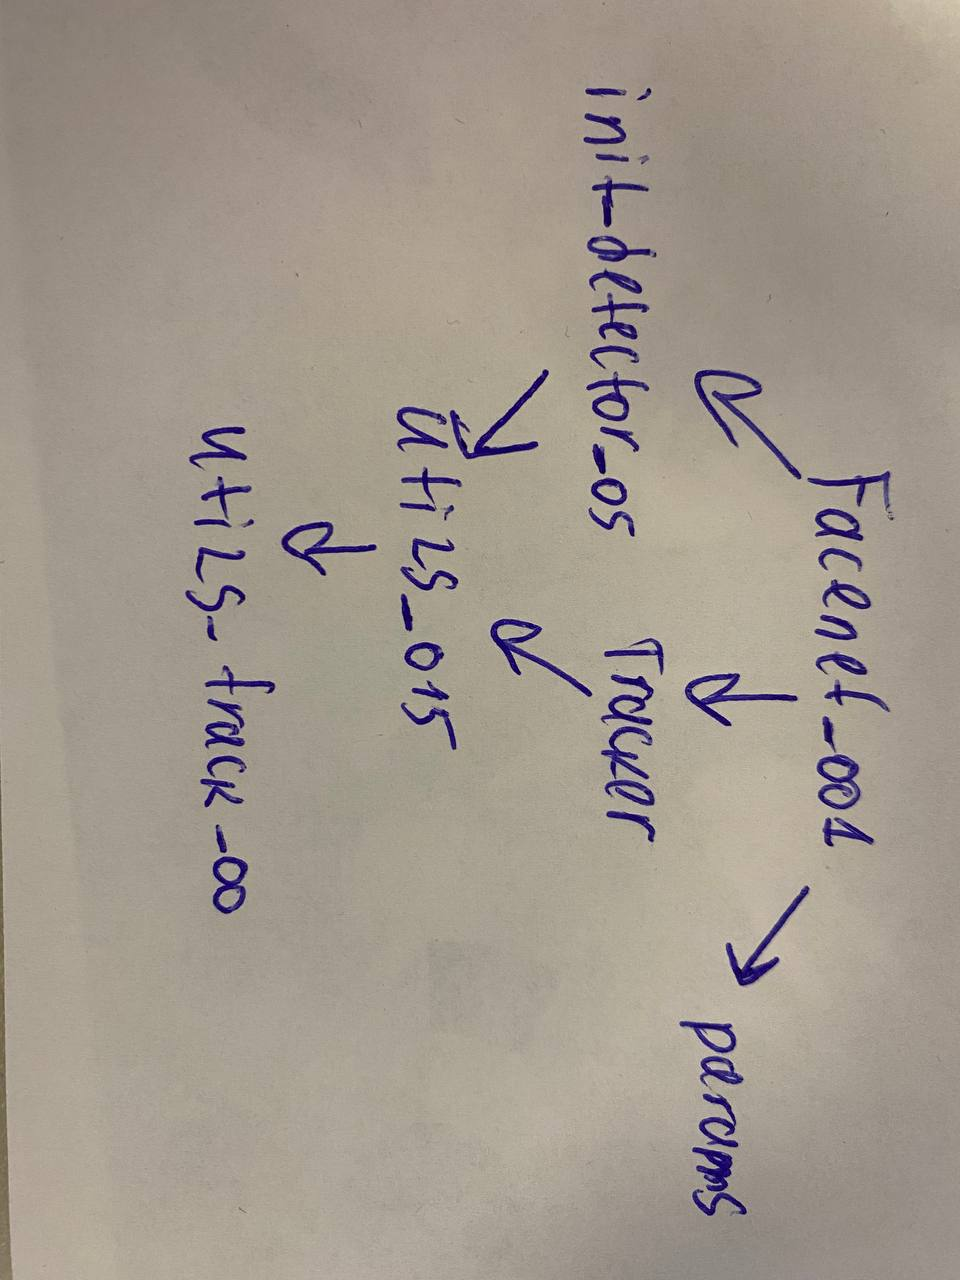 Facenet_001
init_detector_05
Tracker
params
utils_015
utils_track_00